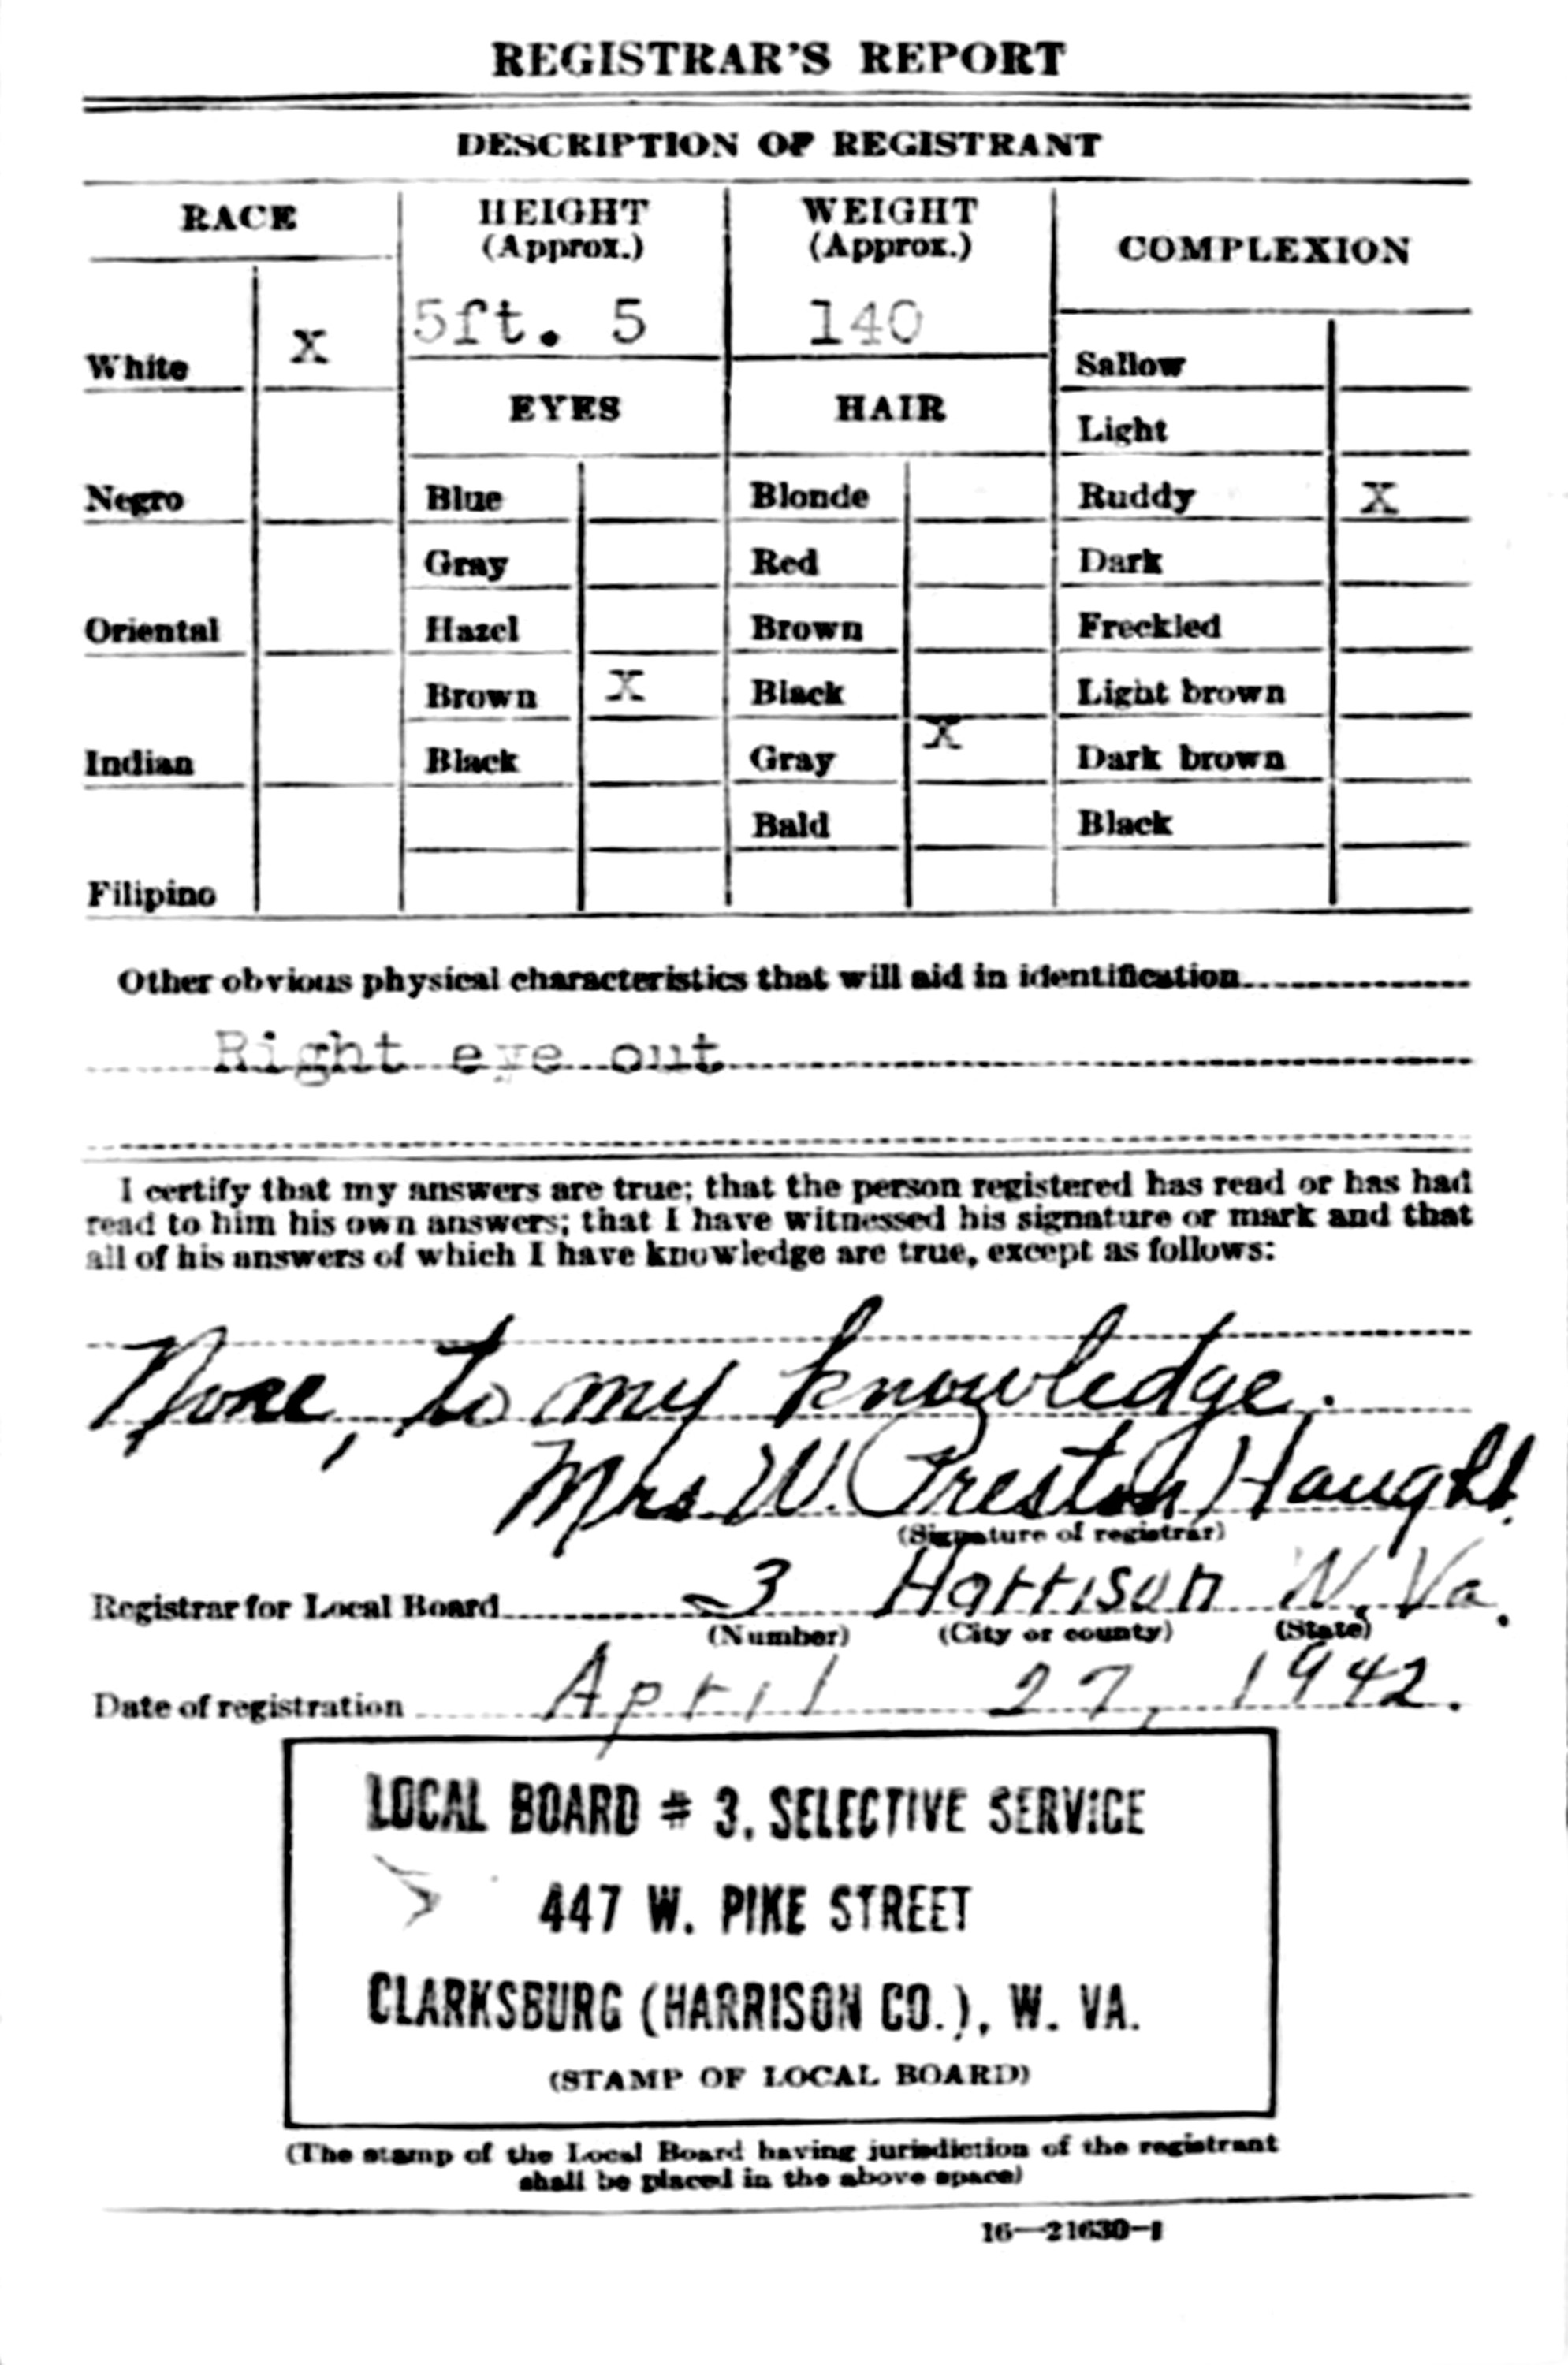 REGISTRAR'S REPORT
DESCRIPTION OF REGISTRANT
RACE
HEIGHT
(Approx.)
WEIGHT
(Approx.)
COMPLEXION
White X
5ft. 5
140
Sallow
EYES
HAIR
Light
Negro
Blue
Blonde
Ruddy X
Gray
Red
Dark
Oriental
Hazel
Brown
Freckled
Brown X
Black
Light brown
Indian
Black
Gray X
Dark brown
Bald
Black
Filipino
Other obvious physical characteristics that will aid in identification
Right eye out
I certify that my answers are true; that the person registered has read or has had
read to him his own answers; that I have witnessed his signature or mark and that
all of his answers of which I have knowledge are true, except as follows:
None, to my knowledge.
Mrs W. Preston Haught.
(Signature of registrar)
Registrar for Local Board 3 Harrison W. Va.
(Number) (City or county) (State)
Date of registration April 27, 1942.
LOCAL BOARD # 3, SELECTIVE SERVICE
447 W. PIKE STREET
CLARKSBURG (HARRISON CO.), W. VA.
(STAMP OF LOCAL BOARD)
(The stamp of the Local Board having jurisdiction of the registrant
shall be placed in the above space)
16—21630-1